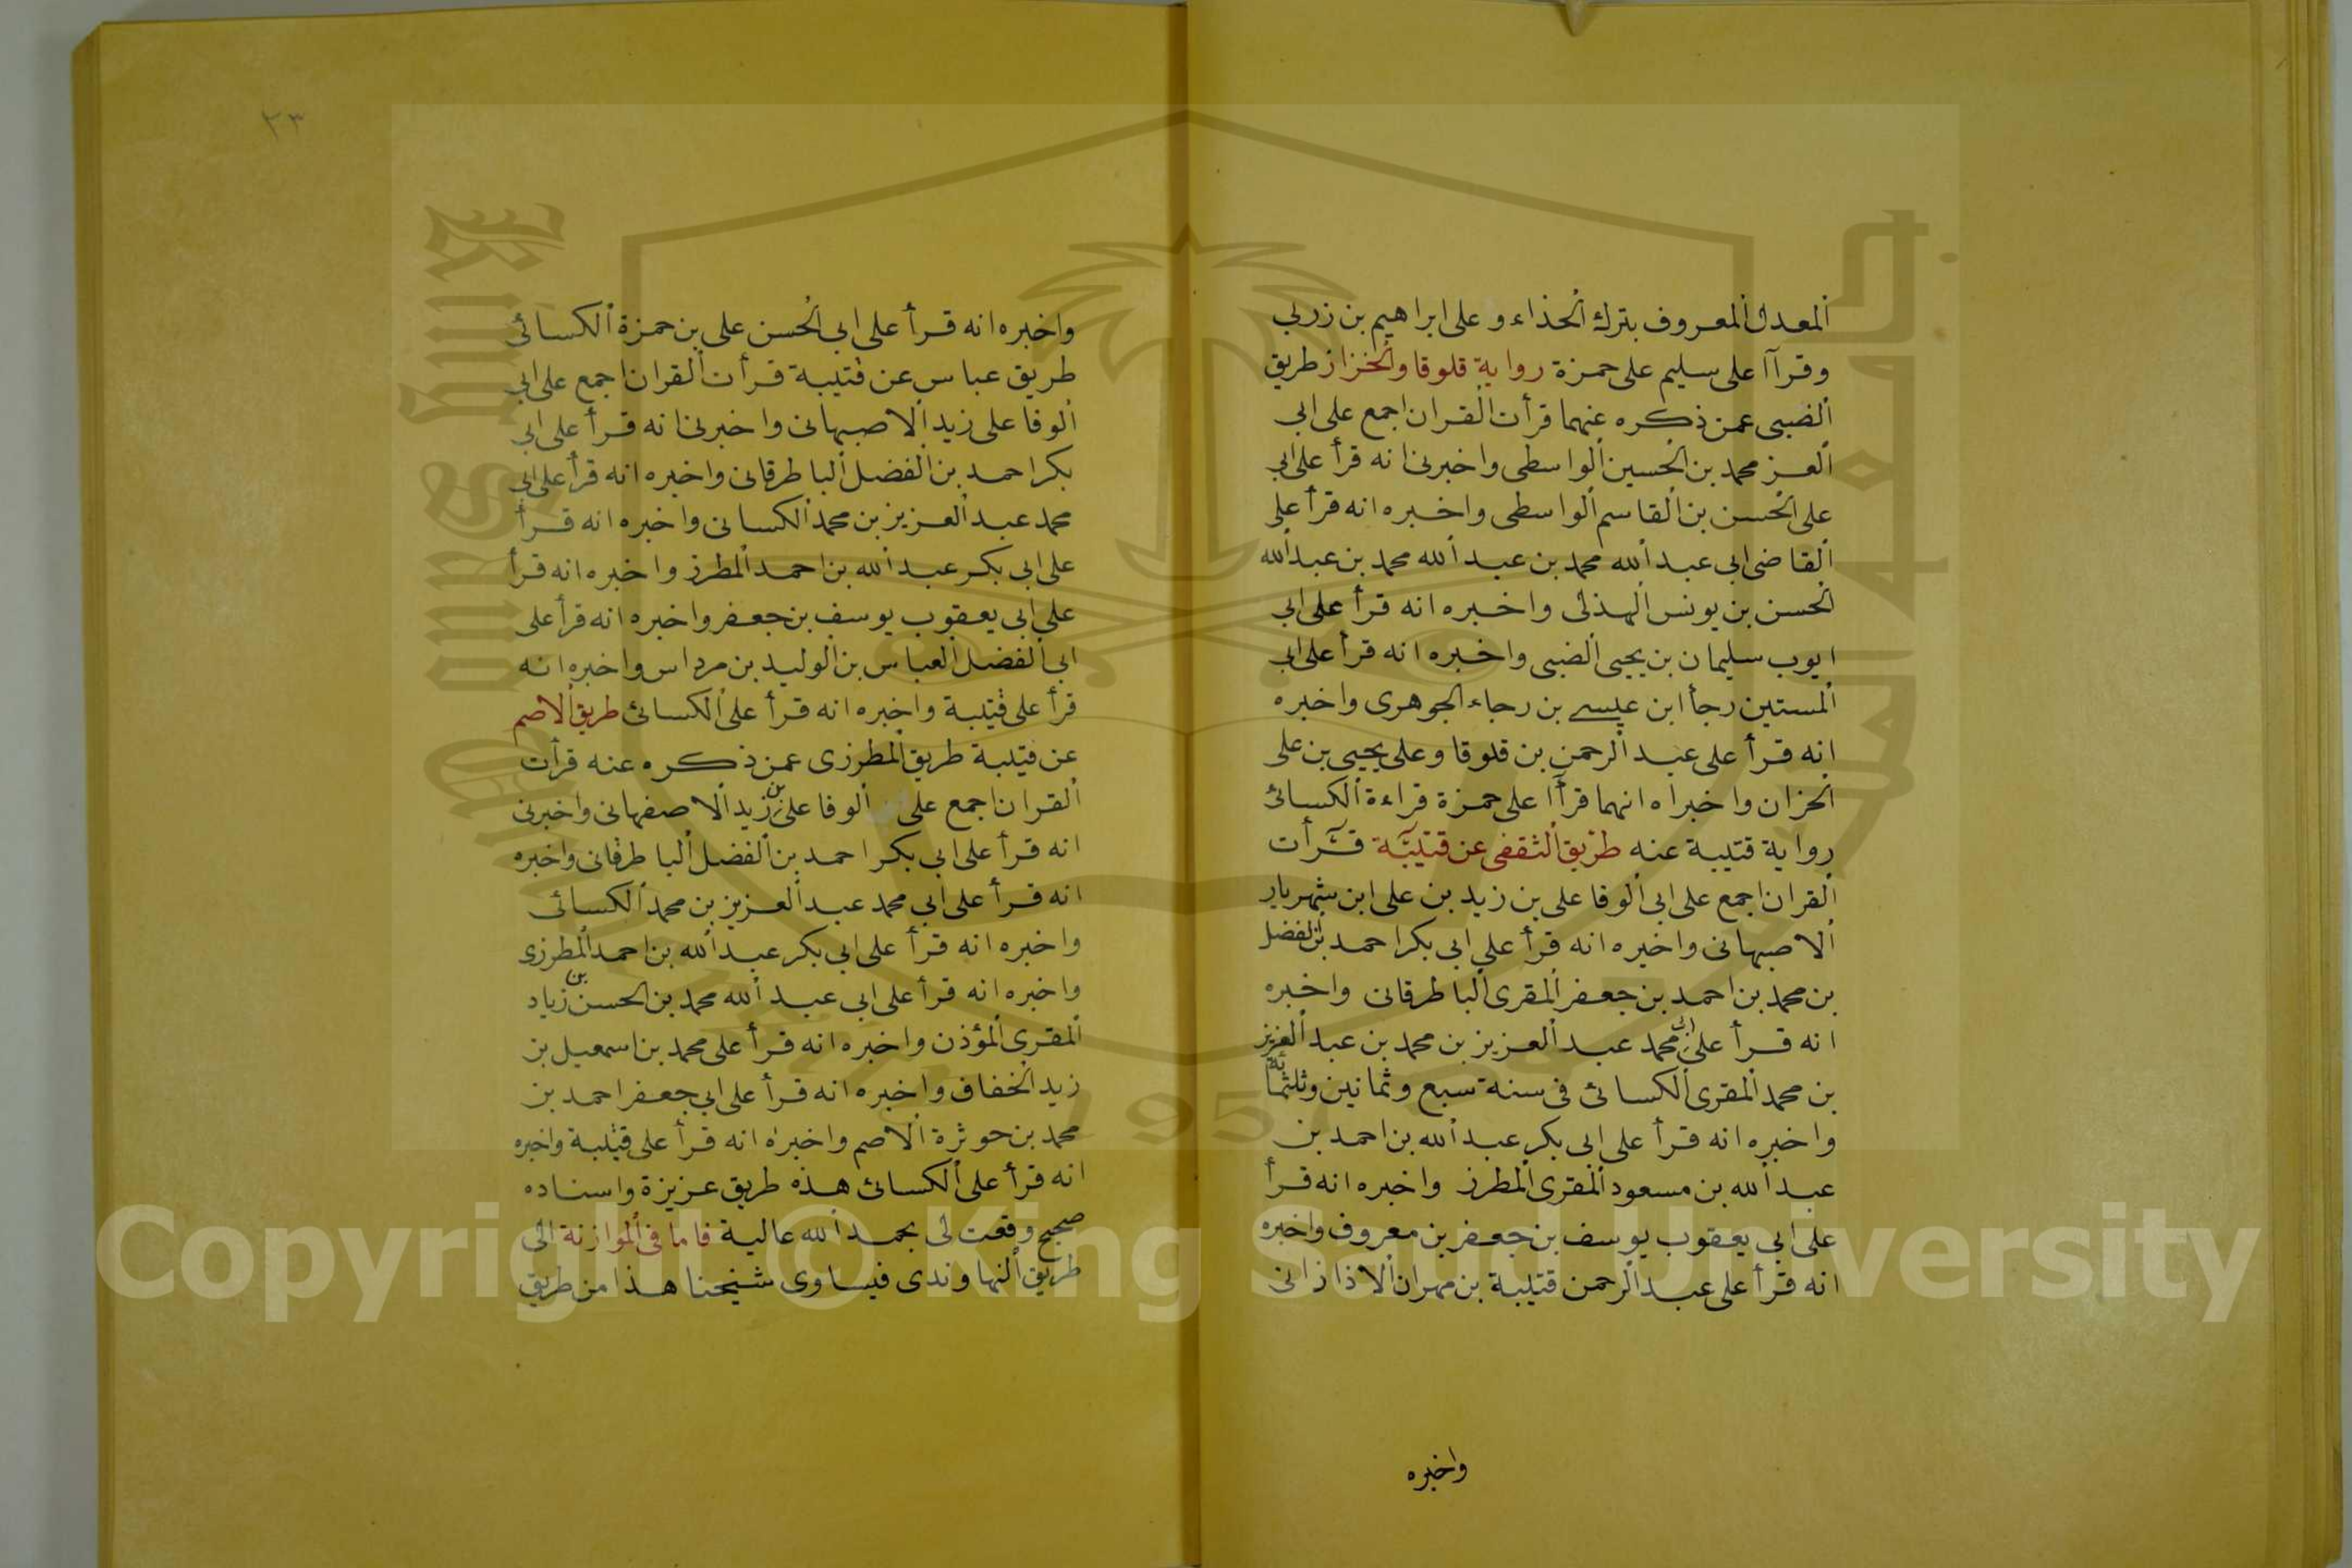 المعدل المعروف بترك الحذاء وعلى ابراهيم بن زربي
وقرآ على سليم على حمزة رواية قلوقا والخزاز طريق
الضبي عمن ذكره عنهما قرأت القران اجمع على ابي
العز محمد بن الحسين الواسطى واخبرنى انه قرأ على ابي
على الحسن بن القاسم الواسطى واخبره انه قرأ على
القاضى ابى عبد الله محمد بن عبد الله محمد بن عبد الله
الحسن بن يونس الهذلى واخبره انه قرأ على ابي
ايوب سليمان بن يحيى الضبى واخبره انه قرأ على ابى
المستين رجأ ابن عيسے بن رجاء الجوهرى واخبره
انه قرأ على عبد الرحمن بن قلوقا وعلى يحيى بن على
الخزان واخبراه انهما قرآ على حمزة قراءة الكسائئ
رواية قتيبة عنه طريق الثقفى عن قتيبة قرأت
القران اجمع على ابى الوفا على بن زيد بن على ابن شهريار
الاصبهانى واخبره انه قرأ على ابى بكر احمد بن الفضل
بن محمد بن احمد بن جعفر المقرى الباطرقانى واخبره
انه قرأ على ابى محمد عبد العزيز بن محمد بن عبد العزيز
بن محمد المقرى الكسائى فى سنة سبع وثمانين وثلثمائة
واخبره انه قرأ على ابى بكر عبد الله بن احمد بن
عبد الله بن مسعود المقرى المطرز واخبره انه قرأ
على ابى يعقوب يوسف بن جعفر بن معروف واخبره
انه قرأ على عبد الرحمن قتيبة بن مهران الاذازانى
واخبره
٢٣
واخبره انه قرأ على ابى الحسن على بن حمزة الكسائى
طريق عباس عن قتيبة قرأت القران اجمع على ابى
الوفا على زيد الاصبهانى واخبرنى انه قرأ على ابى
بكر احمد بن الفضل الباطرقانى واخبره انه قرأ على ابى
محمد عبد العزيز بن محمد الكسانى واخبره انه قرأ
على ابى بكر عبد الله بن احمد المطرز واخبره انه قرأ
على ابى يعقوب يوسف بن جعفر واخبره انه قرأ على
ابى الفضل العباس بن الوليد بن مرداس واخبره انه
قرأ على قتيبة واخبره انه قرأ على الكسائئ طريق الاصم
عن قتيبة طريق المطرزى عمن ذكره عنه قرأت
القران اجمع على الوفا على بن زيد الاصفهانى واخبرنى
انه قرأ على ابى بكر احمد بن الفضل الباطرقانى واخبره
انه قرأ على ابى محمد عبد العزيز بن محمد الكسائى
واخبره انه قرأ على ابى بكر عبد الله بن احمد المطرزى
واخبره انه قرأ على ابى عبد الله محمد بن الحسن بن زياد
المقرى المؤذن واخبره انه قرأ على محمد بن اسمعيل بن
زيد الخفاف واخبره انه قرأ على ابى جعفر احمد بن
محمد بن حوثرة الاصم واخبره انه قرأ على قتيبة واخبره
انه قرأ على الكسائئ هذه طريق عزيزة واسناده
صحيح وقعت لى بحمد الله عالية فاما فى الموازنة الى
طريق النهاوندى فيساوى شيخنا هذا من طريق
Copyright © King Saud University
1957